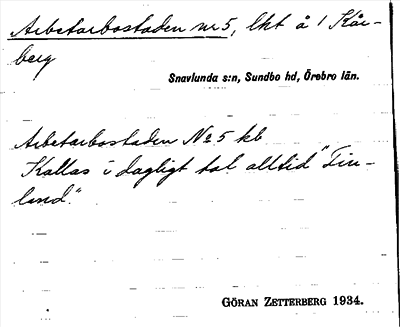 Arbetarbostaden nr 5, lht å 1 Kår-
berg
Snavlunda s:n, Sundbo hd, Örebro län.
Arbetarbostaden No 5 kb
Kallas i dagligt tal alltid "Fin-
land".
GÖRAN ZETTERBERG 1934.